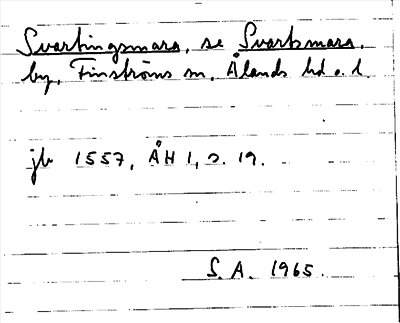 Svartingsmara, se Svartsmara,
by, Finströms sn, Ålands hd o. l.
jb 1557, ÅH 1, s. 19.
S. A. 1965.